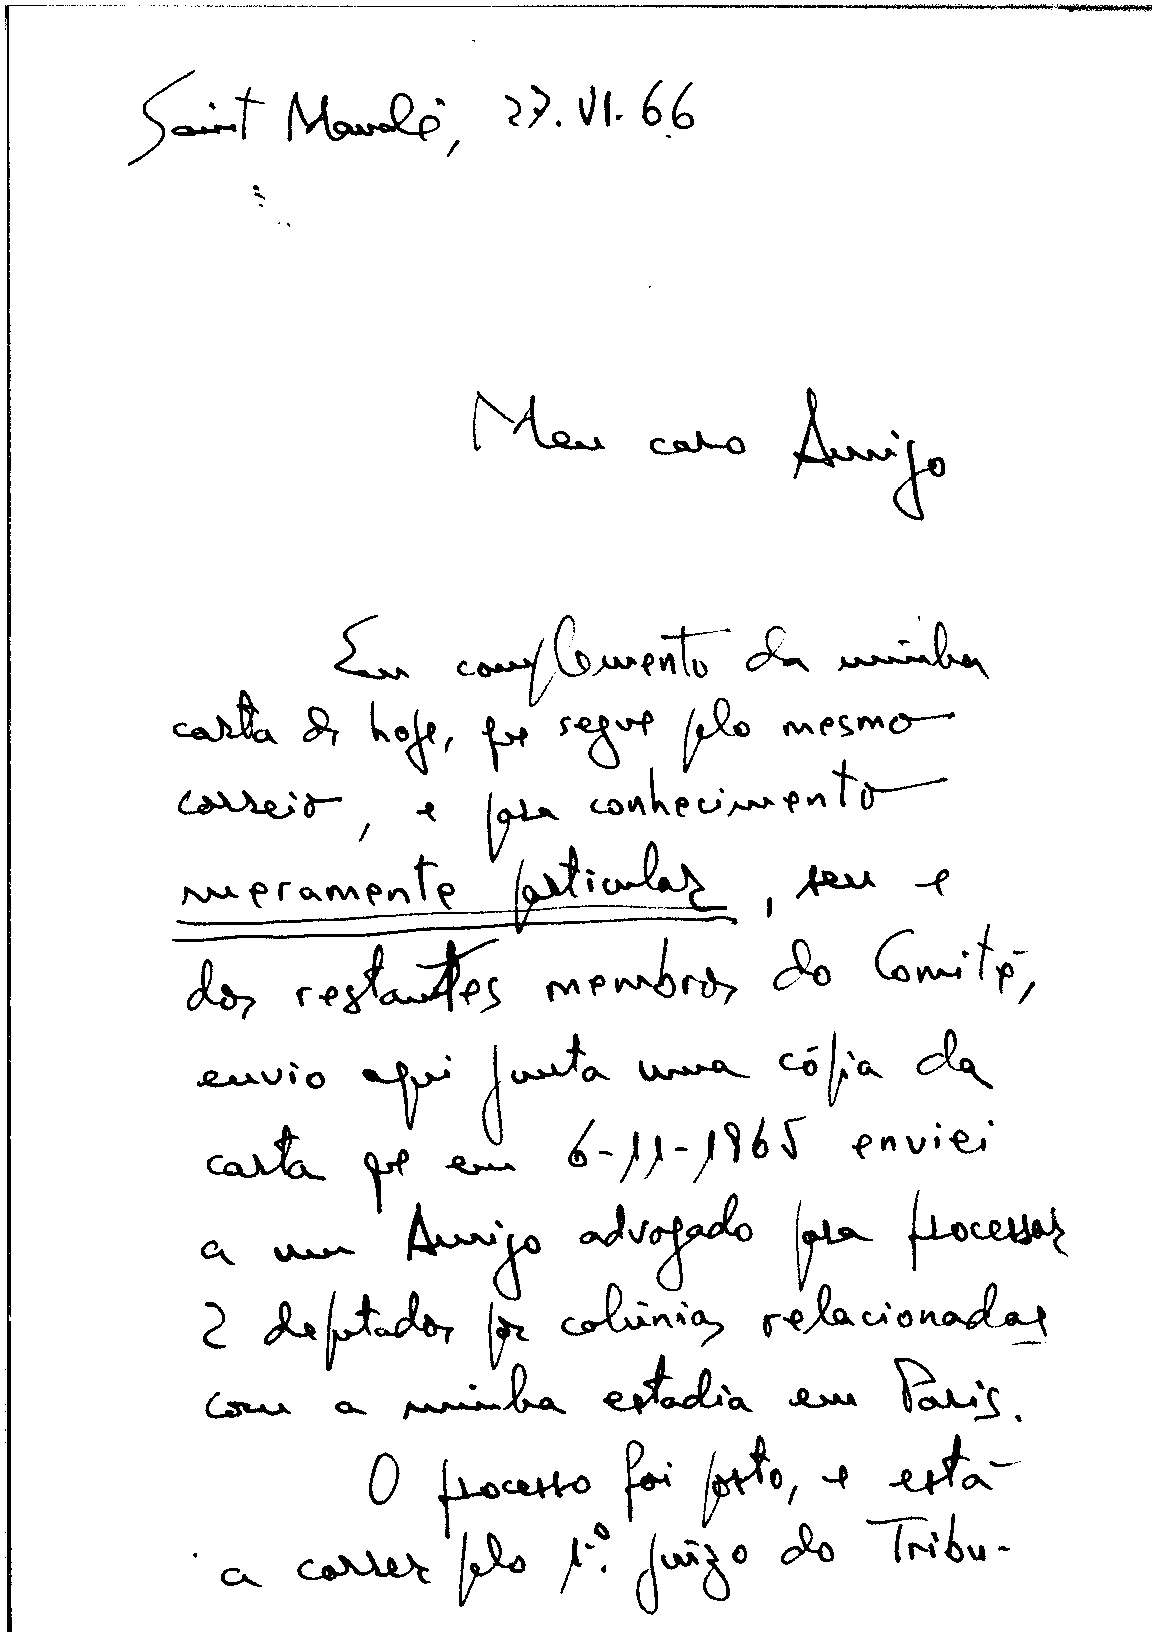 Saint Mandé, 27.VI.66
Meu caro Amigo
Em complemento da minha
carta de hoje, que segue pelo mesmo
correio, e para conhecimento
meramente particular, seu e
dos restantes membros do Comité,
envio aqui junta uma cópia da
carta que em 6-11-1965 enviei
a um Amigo advogado para processar
2 deputados por calúnias relacionadas
com a minha estadia em Paris.
O processo foi posto, e está
a correr pelo 1.º juízo do Tribu-